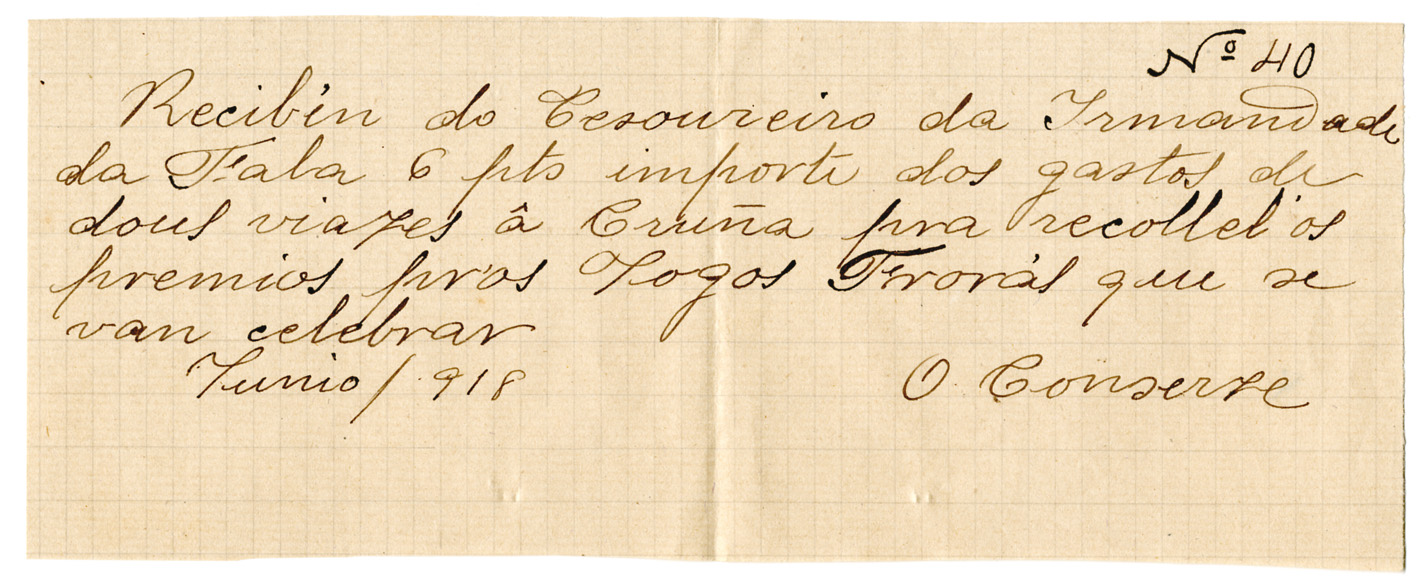 Nº 40
Recibín do Tesoureiro da Irmandade
da Fala 6 pts importe dos gastos de
dous viaxes â Cruña pra recollel'os
premios pr'os Xogos Froráls que se
van celebrar
Xunio / 918
O Conserxe